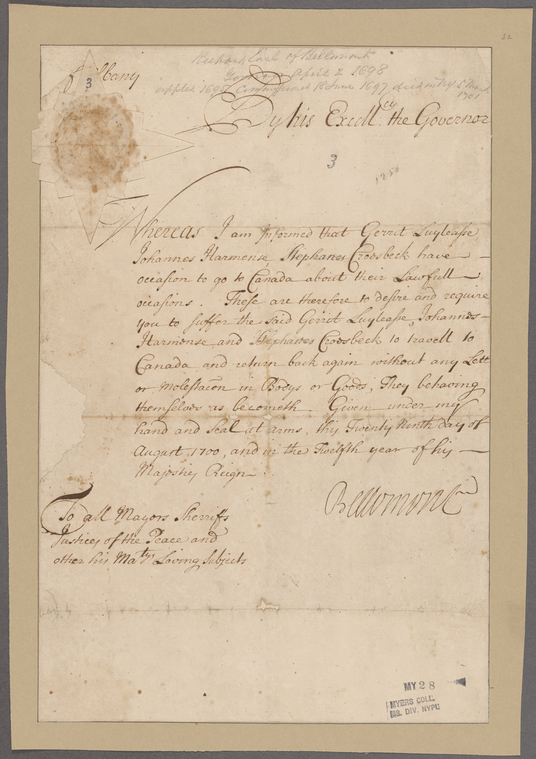 32
Richard Earl of Bellomont
Governor April 2 1698
Albany
3
applied 1695 Commissioned 18 June 1697 died in the 5 March
1701
By his Excell:cy the Governor
3
Whereas I am Informed that Gerrit Luyleasse
Johannes Harmense, Stephanes Croosbeck have
occasion to go to Canada about their Lawfull
occasions. These are therefore to desire and require
you to suffer the said Gerrit Luyleasse, Johannes
Harmense and Stephanes Croosbeck to travell to
Canada and return back again without any Lett
or molestacon in Bodys or Goods, They behaving
themselves as becometh. Given under my
hand and Seal at arms, this Twenty Ninth day of
August 1700, and in the Twelfth year of his
Majesties Reign
Bellomont
To all Mayors Sherriffs
Justices of the Peace and
other his Ma:tys Loving Subjects
MY 28
MYERS COLL.
MS. DIV. NYPL